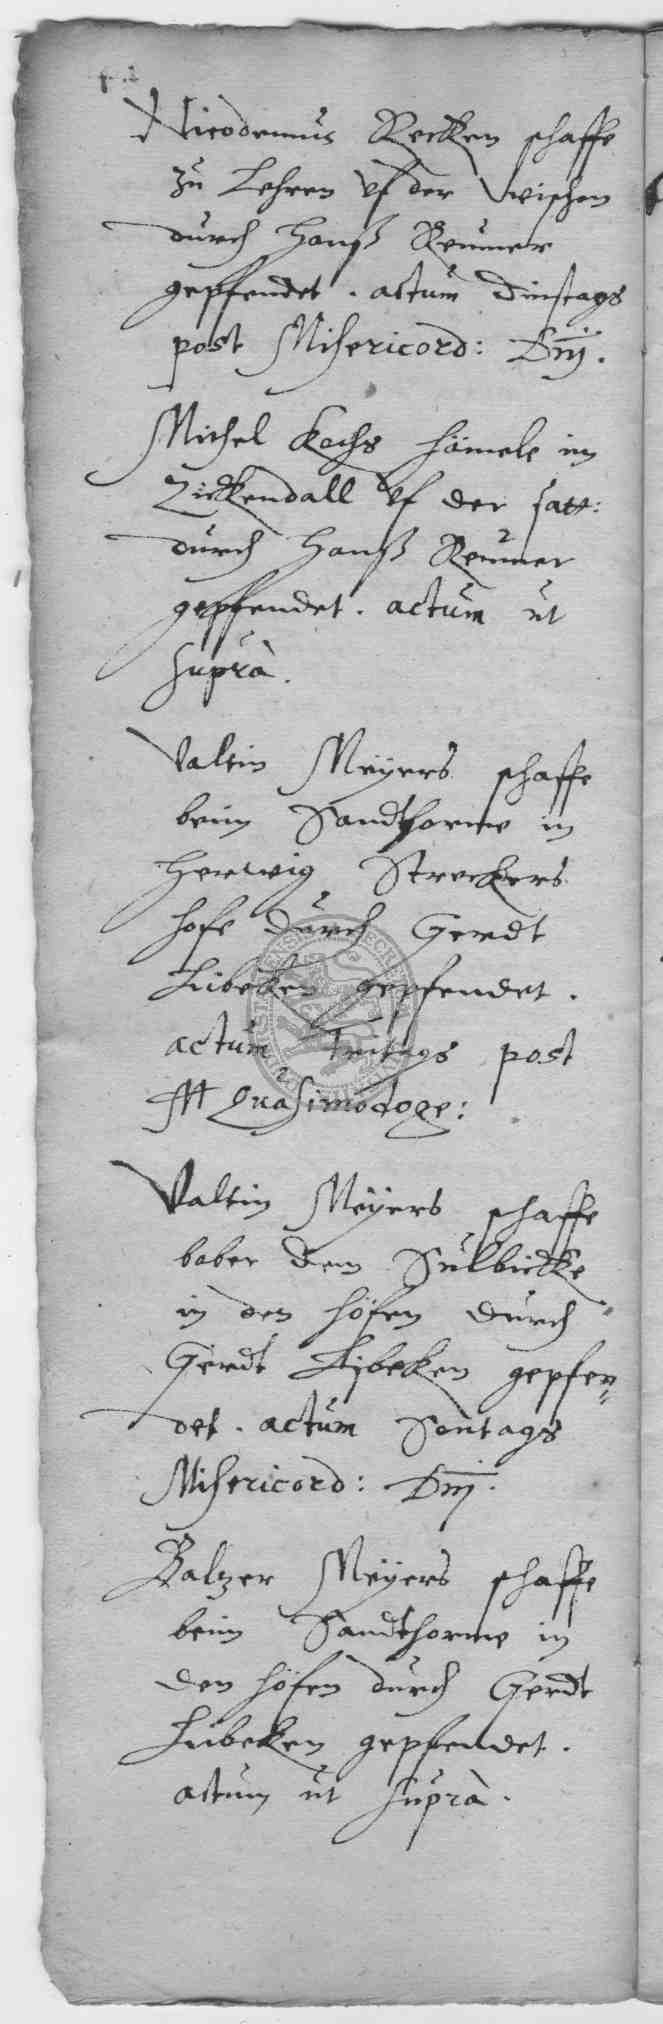 Nicodemus Recken schaffe
zu Lehren uf der wischen
durch Hanß Renner
gepfendet. actum Dinstags
post Misericord: Dnj.
Michel Kochs hämele im
Zickendall uf der satt:
durch Hanß Renner
gepfendet. actum ut
suprà.
Valtin Meÿers schaffe
beim Sandthorme in
Herwig Streckers
hofe durch Gerdt
Lübeken gepfendet.
actum Freitags post
Quasimodoge:
Valtin Meÿers schaffe
bober dem Sulbicke
in den höfen durch
Gerdt Lübeken gepfen=
det. actum Sontags
Misericord: Dnj.
Baltzer Meÿers schaffe
beim Sandthorme in
den höfen durch Gerdt
Lübeken gepfendet.
actum ut suprà.